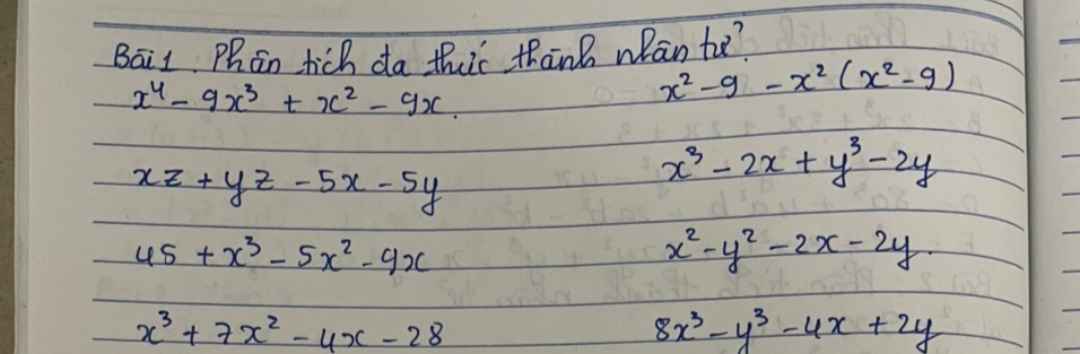 Bài 1. Phân tích đa thức thành nhân tử?
x⁴ - 9x³ + x² - 9x. x² - 9 - x² (x² - 9)
xz + yz - 5x - 5y x³ - 2x + y³ - 2y
45 + x³ - 5x² - 9x x² - y² - 2x - 2y.
x³ + 7x² - 4x - 28 8x³ - y³ - 4x + 2y